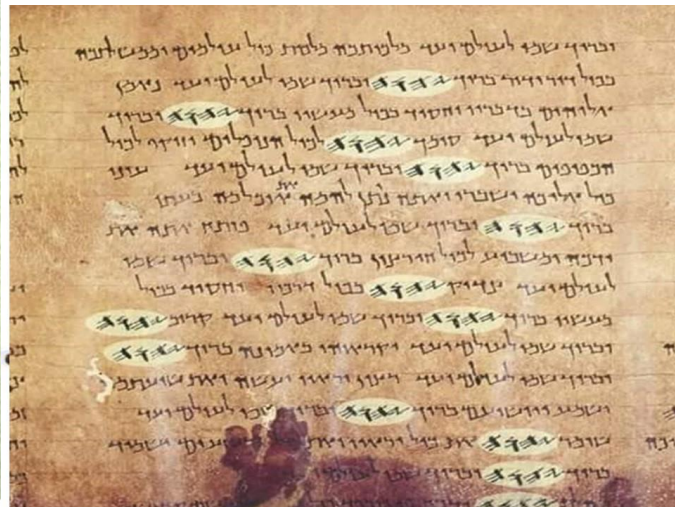 וברוך שמו לעולם ועד מלכותכה מלכות כול עולמים וממשלתכה
בכול דור ודור ברוך 𐤉𐤄𐤅𐤄 וברוך שמו לעולם ועד נאמן
אלוהים בדבריו וחסיד בכול מעשיו ברוך 𐤉𐤄𐤅𐤄 וברוך
שמו לעולם ועד סומך 𐤉𐤄𐤅𐤄 לכול הנופלים וזוקף לכול
הכפופים ברוך 𐤉𐤄𐤅𐤄 וברוך שמו לעולם ועד עיני
כול אליכה ישברו ואתה נתן להמה את אוכלמה בעתו
ברוך 𐤉𐤄𐤅𐤄 וברוך שמו לעולם ועד פותח אתה את
ידכה ומשביע לכול חי רצון ברוך 𐤉𐤄𐤅𐤄 וברוך שמו
לעולם ועד צדיק 𐤉𐤄𐤅𐤄 בכול דרכיו וחסיד בכול
מעשיו ברוך 𐤉𐤄𐤅𐤄 וברוך שמו לעולם ועד קרוב 𐤉𐤄𐤅𐤄
וברוך שמו לעולם ועד יקראוהו באמונה ברוך 𐤉𐤄𐤅𐤄
וברוך שמו לעולם ועד רצון יראיו יעשה ואת שועתמה
ישמע ויושיעם ברוך 𐤉𐤄𐤅𐤄 וברוך שמו לעולם ועד
שומר 𐤉𐤄𐤅𐤄 את כול יראיו ואת רשעים ישמיד
ברוך 𐤉𐤄𐤅𐤄 וברוך שמו לעולם
𐤉𐤄𐤅𐤄